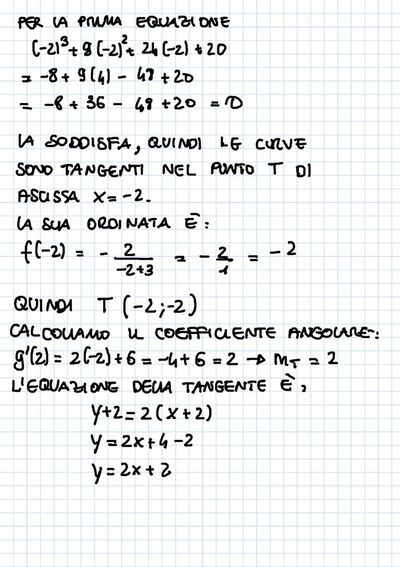 PER LA PRIMA EQUAZIONE
(-2)³ + 9(-2)² + 24(-2) + 20
= -8 + 9(4) - 48 + 20
= -8 + 36 - 48 + 20 = 0
LA SODDISFA, QUINDI LE CURVE
SONO TANGENTI NEL PUNTO T DI
ASCISSA X = -2.
LA SUA ORDINATA È:
f(-2) = - 2/(-2+3) = - 2/1 = -2
QUINDI T (-2;-2)
CALCOLIAMO IL COEFFICIENTE ANGOLARE:
g'(2) = 2(-2)+6 = -4+6 = 2 → m_T = 2
L'EQUAZIONE DELLA TANGENTE È,
y+2 = 2(x+2)
y = 2x+4-2
y = 2x+2